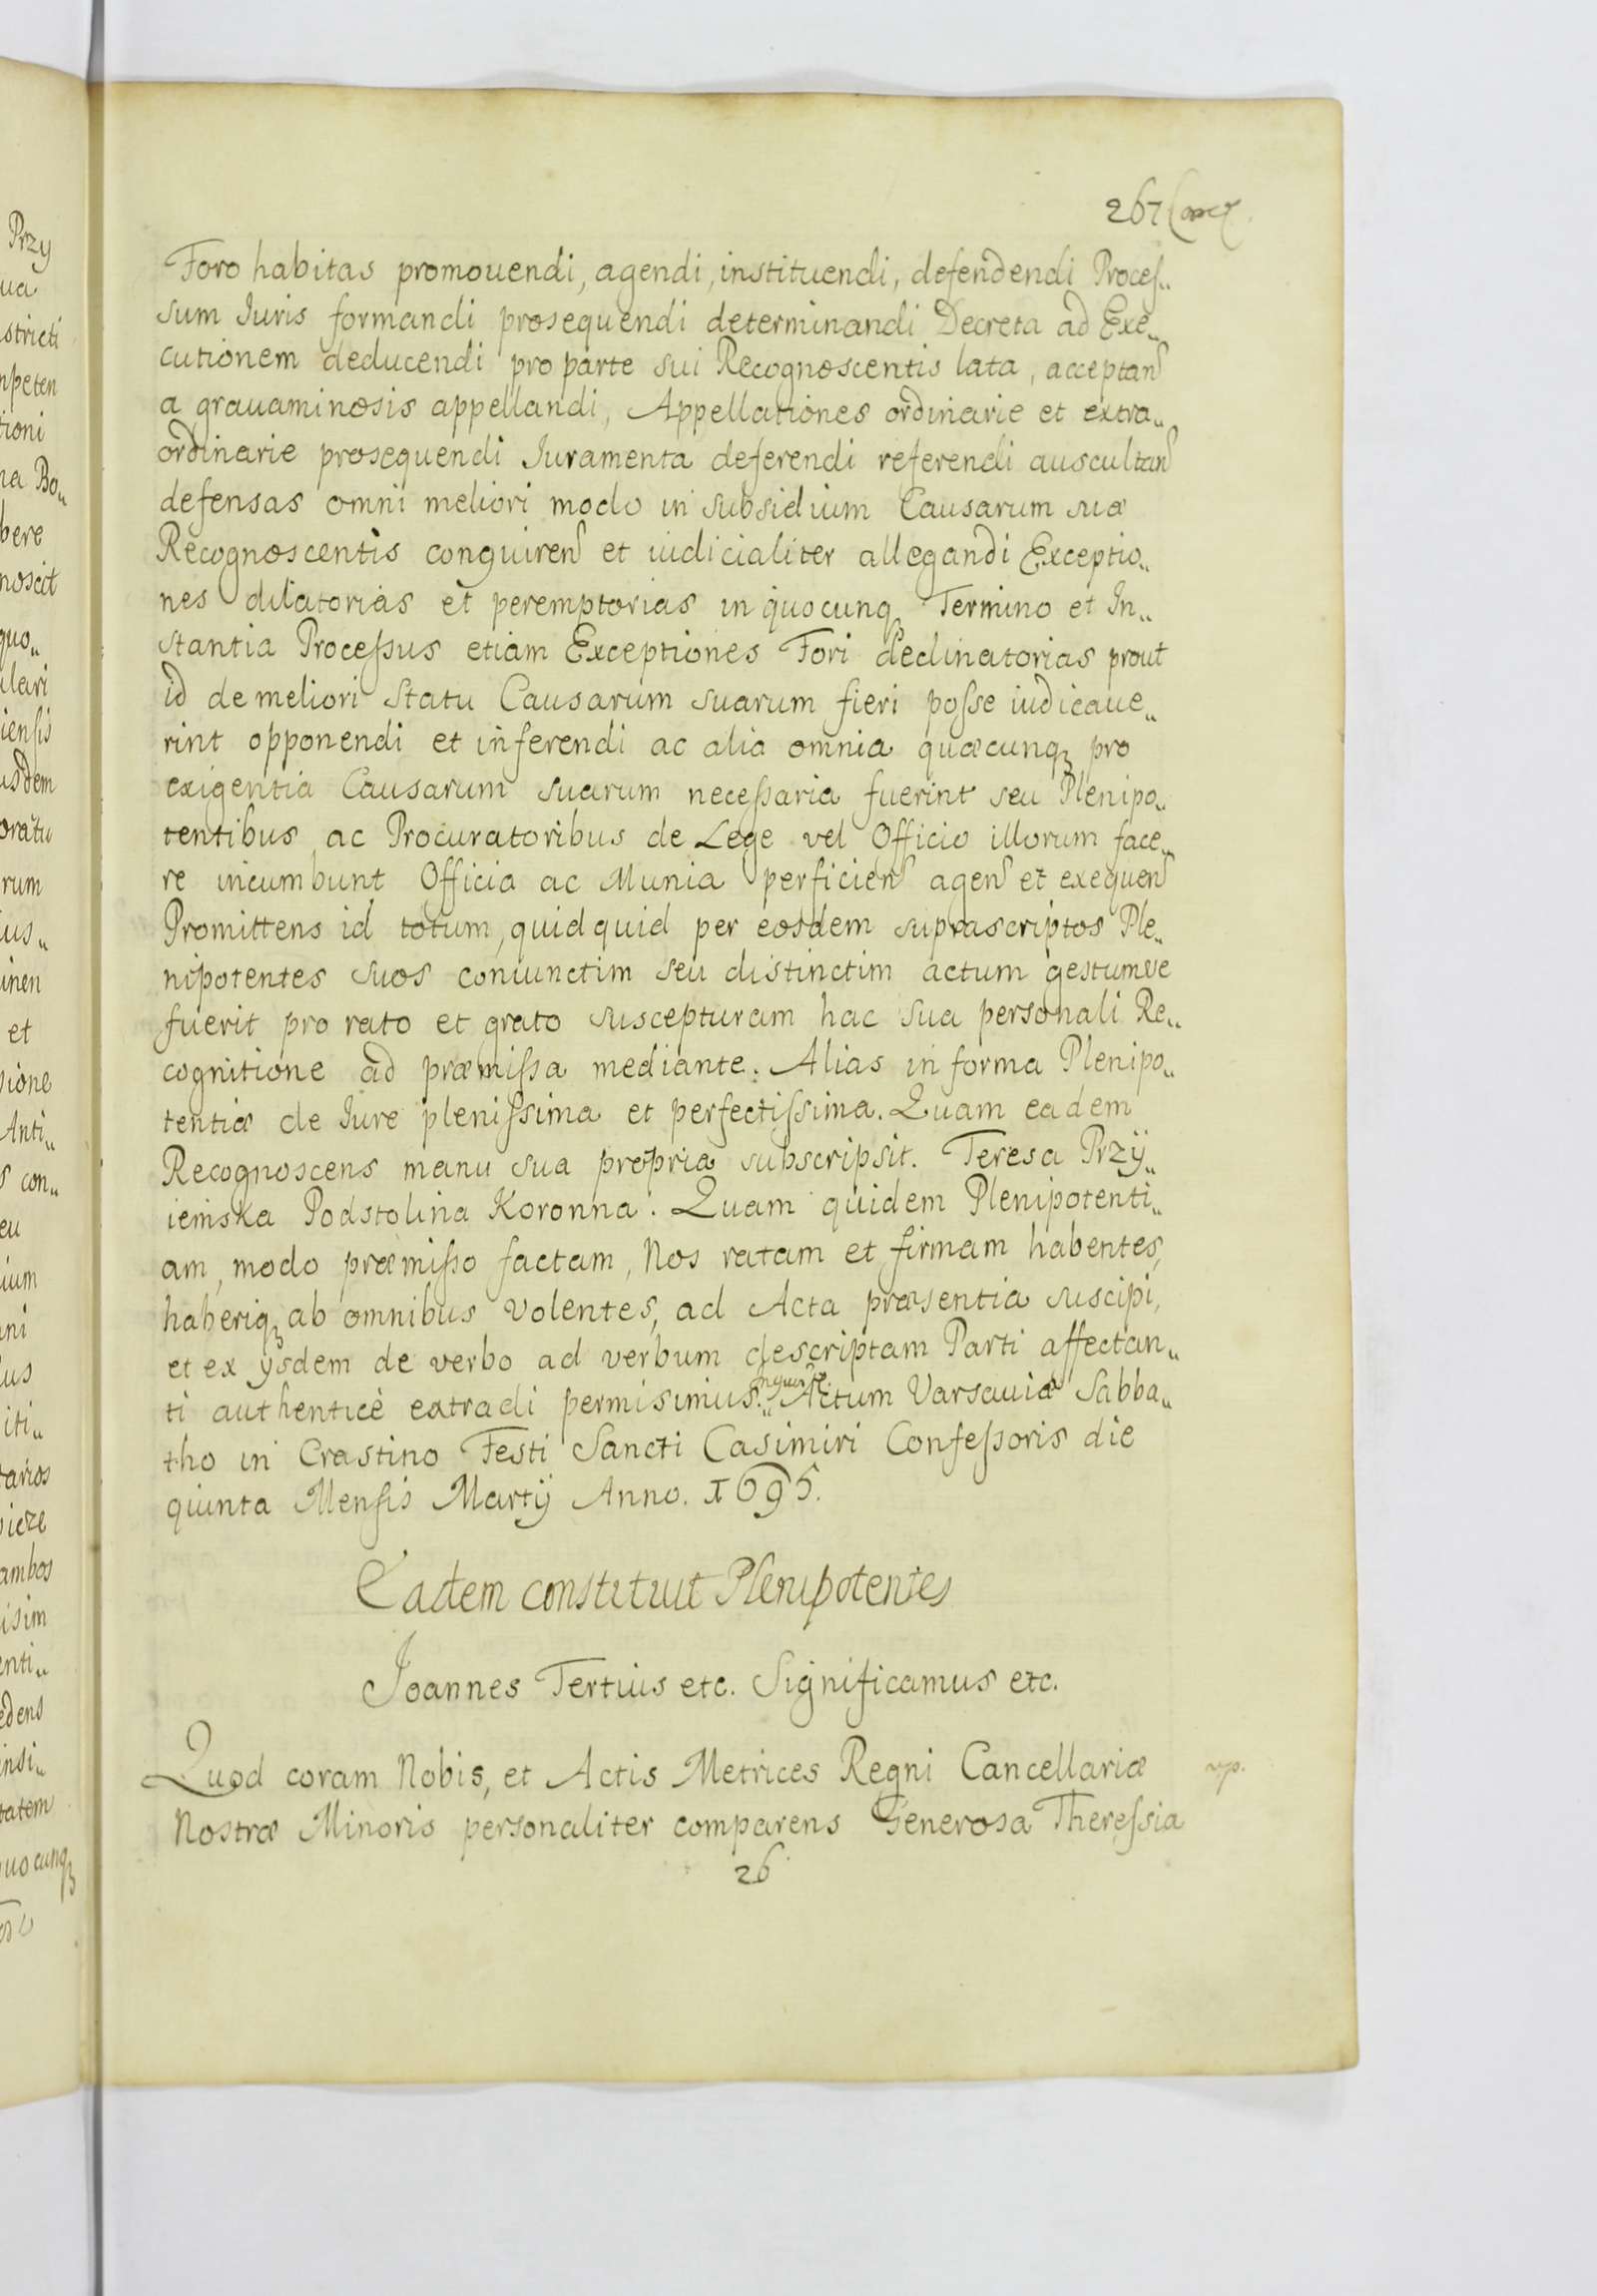 267
Foro habitas promouendi, agendi, instituendi, defendendi Proceſ„
sum Iuris formandi prosequendi determinandi Decreta ad Exe„
cutionem deducendi pro parte sui Recognoscentis lata, acceptan
a grauaminosis appellandi, Appellationes ordinarie et extra„
ordinarie prosequendi Iuramenta deferendi referendi auscultan
defensas omni meliori modo in subsidium Causarum suæ
Recognoscentis conquiren et iudicialiter allegandi Exceptio„
nes dilatorias et peremptorias in quocunqꝫ Termino et In„
stantia Proceſsus etiam Exceptiones Fori declinatorias prout
id de meliori Statu Causarum suarum fieri poſse iudicaue„
rint opponendi et inferendi ac alia omnia quæcunqꝫ pro
exigentia Causarum suarum neceſsaria fuerint seu Plenipo„
tentibus ac Procuratoribus de Lege vel Officio illorum face„
re incumbunt Officia ac Munia perficien agen et exequen
Promittens id totum, quidquid per eosdem suprascriptos Ple„
nipotentes suos coniunctim seu distinctim actum gestumve
fuerit pro rato et grato suscepturam hac sua personali Re„
cognitione ad præmiſsa mediante. Alias in forma Plenipo„
tentiæ de Iure pleniſsima et perfectiſsima. Quam eadem
Recognoscens manu sua propria subscripsit. Teresa Przÿ„
iemska Podstolina Koronna. Quam quidem Plenipotenti„
am, modo præmiſso factam, Nos ratam et firmam habentes,
haberiqꝫ ab omnibus volentes, ad Acta præsentia suscipi,
et ex ÿsdem de verbo ad verbum descriptam Parti affectan„
ti authenticè extradi permisimus. Actum Varsauiæ Sabba„
tho in Crastino Festi Sancti Casimiri Confeſsoris die
quinta Menſis Martÿ Anno. 1695.
Eadem constituit Plenipotentes
Ioannes Tertius etc. Significamus etc.
Quod coram Nobis, et Actis Metrices Regni Cancellariæ
Nostræ Minoris personaliter comparens Generosa Thereſsia
26